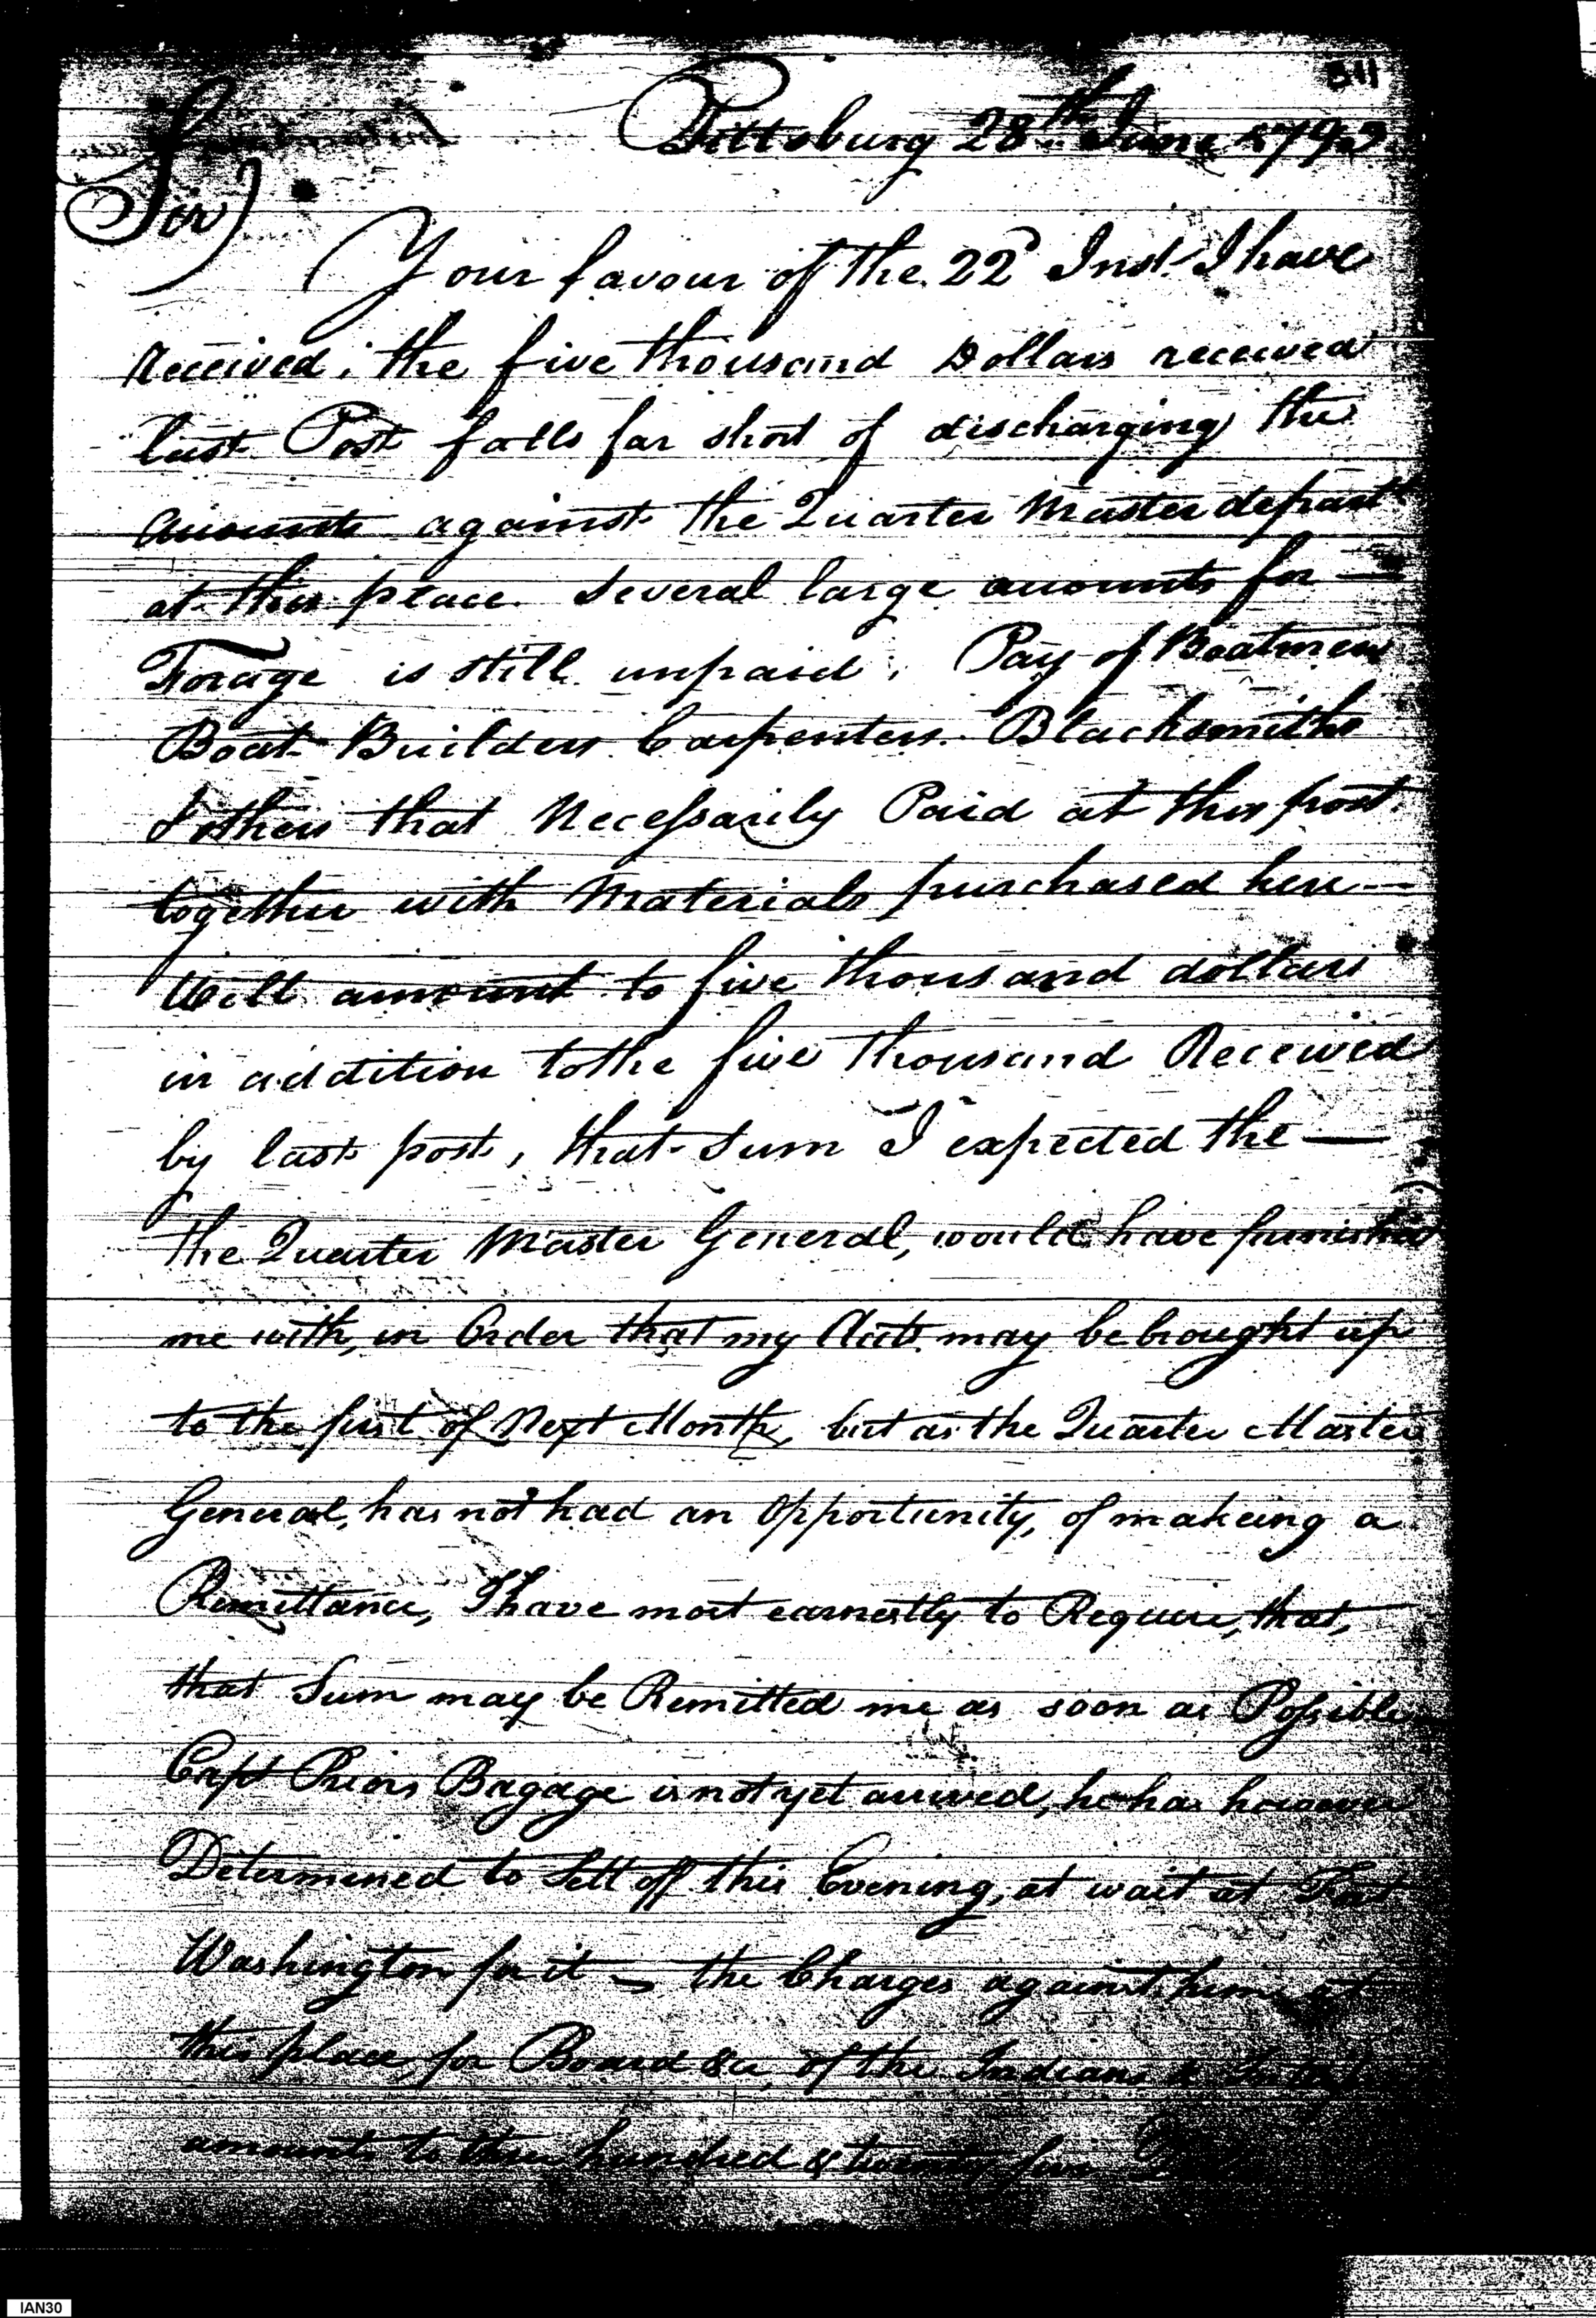 311
Pittsburg 28th June 1792
Sir
Your favour of the 22d Inst. I have
Received; the five thousand Dollars received
last Post falls far short of discharging the
accounts against the Quarter Master depart
at this place. Several large accounts for —
Forage is still unpaid; Pay of Boatmen
Boat Builders Carpenters. Blacksmiths
& others that Necessarily Paid at this post.
together with Materials purchased here —
Will amount to five thousand dollars
in addition to the five thousand Received
by last post, that Sum I expected the —
the Quarter Master General, would have furnished
me with, in Order that my Accts. may be brought up
to the first of Next Month, but as the Quarter Master
General, has not had an Opportunity, of makeing a
Remittance, I have most earnestly to Require, that,
that Sum may be Remitted me as soon as Possible
Capt Priors Bagage is not yet arrived, he has however
Determined to Sett off this Evening, at wait at Fort
Washington for it — the Charges against him at
this place, for Board &c, of the Indians &
amounts to hundred & twenty five
IAN30